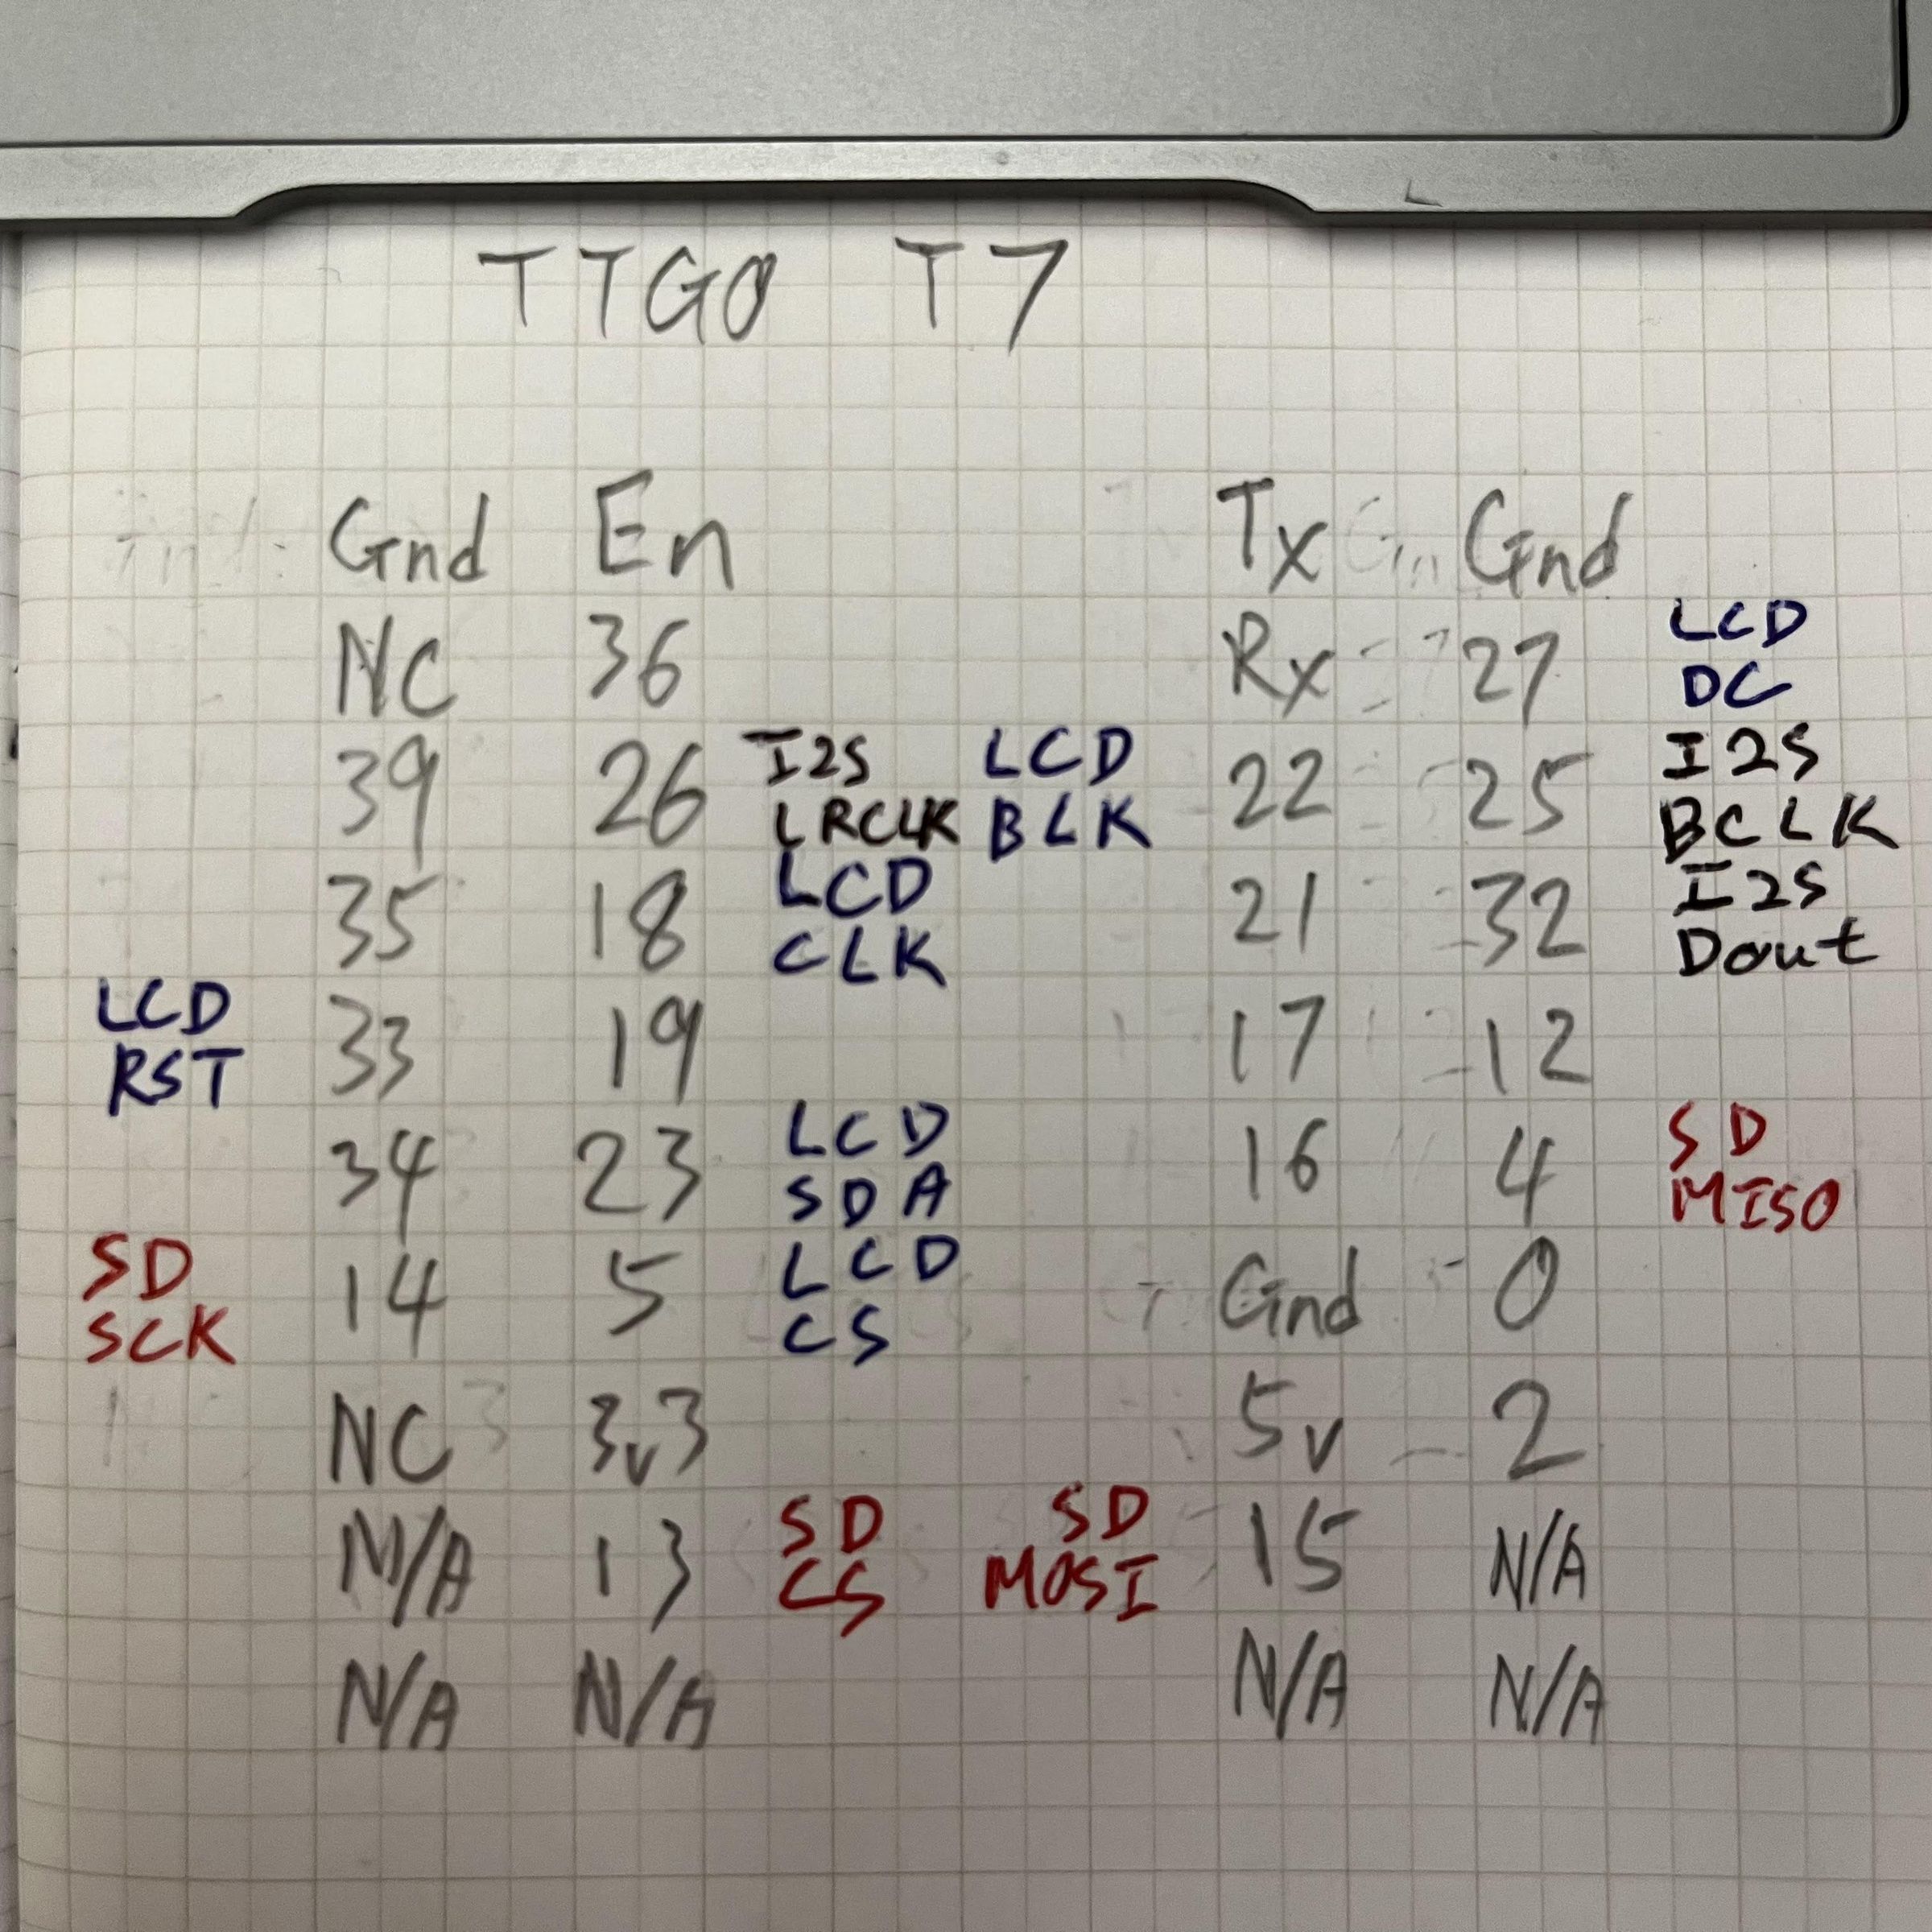 TTGO T7
Gnd En Tx Gnd
NC 36 Rx 27 LCD DC
39 26 I2S LRCLK LCD BLK 22 25 I2S BCLK
35 18 LCD CLK 21 32 I2S Dout
LCD RST 33 19 17 12
34 23 LCD SDA 16 4 SD MISO
SD SCK 14 5 LCD CS Gnd 0
NC 3v3 5v 2
N/A 13 SD CS SD MOSI 15 N/A
N/A N/A N/A N/A